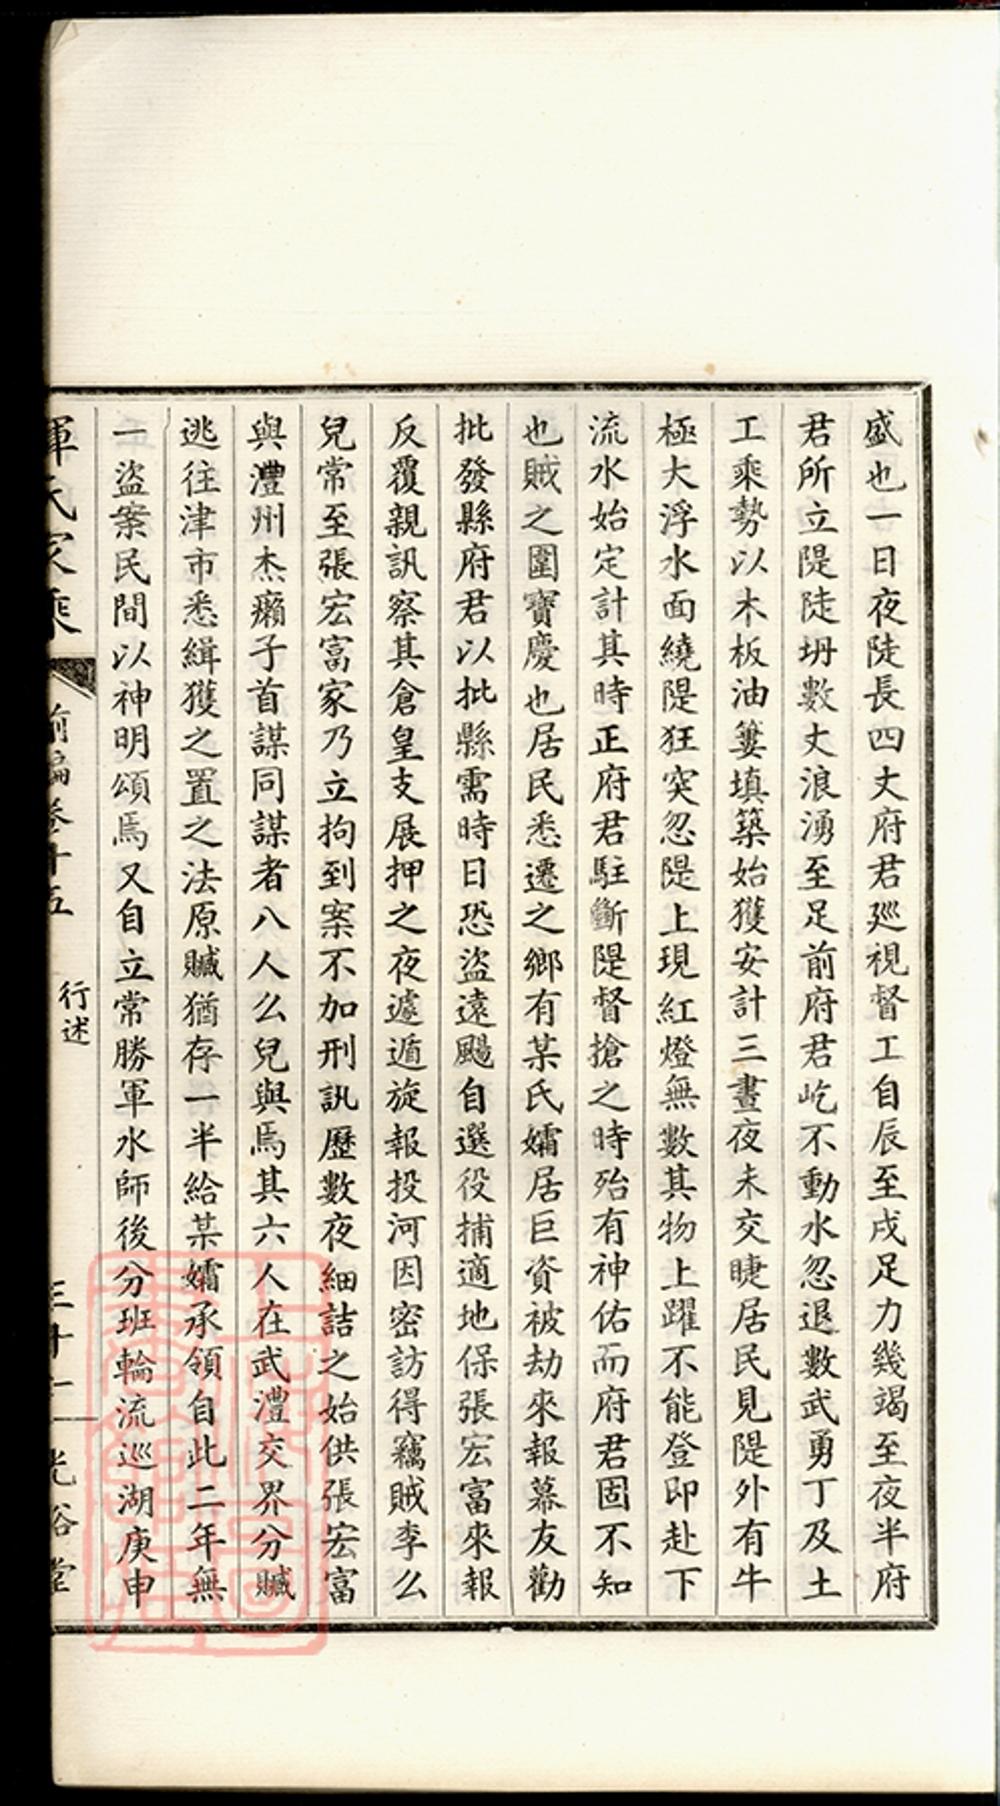 盛也一日夜陡長四丈府君廵視督工自辰至戌足力幾竭至夜半府
君所立隄陡坍數丈浪湧至足前府君屹不動水忽退數武勇丁及土
工乘勢以木板油簍填築始獲安計三晝夜未交睫居民見隄外有牛
極大浮水面繞隄狂突忽隄上現紅燈無數其物上躍不能登即赴下
流水始定計其時正府君駐斷隄督搶之時殆有神佑而府君固不知
也賊之圍寶慶也居民悉遷之鄉有某氏孀居巨資被劫來報幕友勸
批發縣府君以批縣需時日恐盜遠颺自選役捕適地保張宏富來報
反覆親訊察其倉皇支展押之夜遽遁旋報投河因密訪得竊賊李么
兒常至張宏富家乃立拘到案不加刑訊歷數夜細詰之始供張宏富
與澧州杰癩子首謀同謀者八人么兒與焉其六人在武澧交界分贓
逃往津市悉緝獲之置之法原贓猶存一半給某孀承領自此二年無
一盜案民間以神明頌焉又自立常勝軍水師後分班輪流巡湖庚申
惲氏家乘
前編卷十五
行述
光裕堂